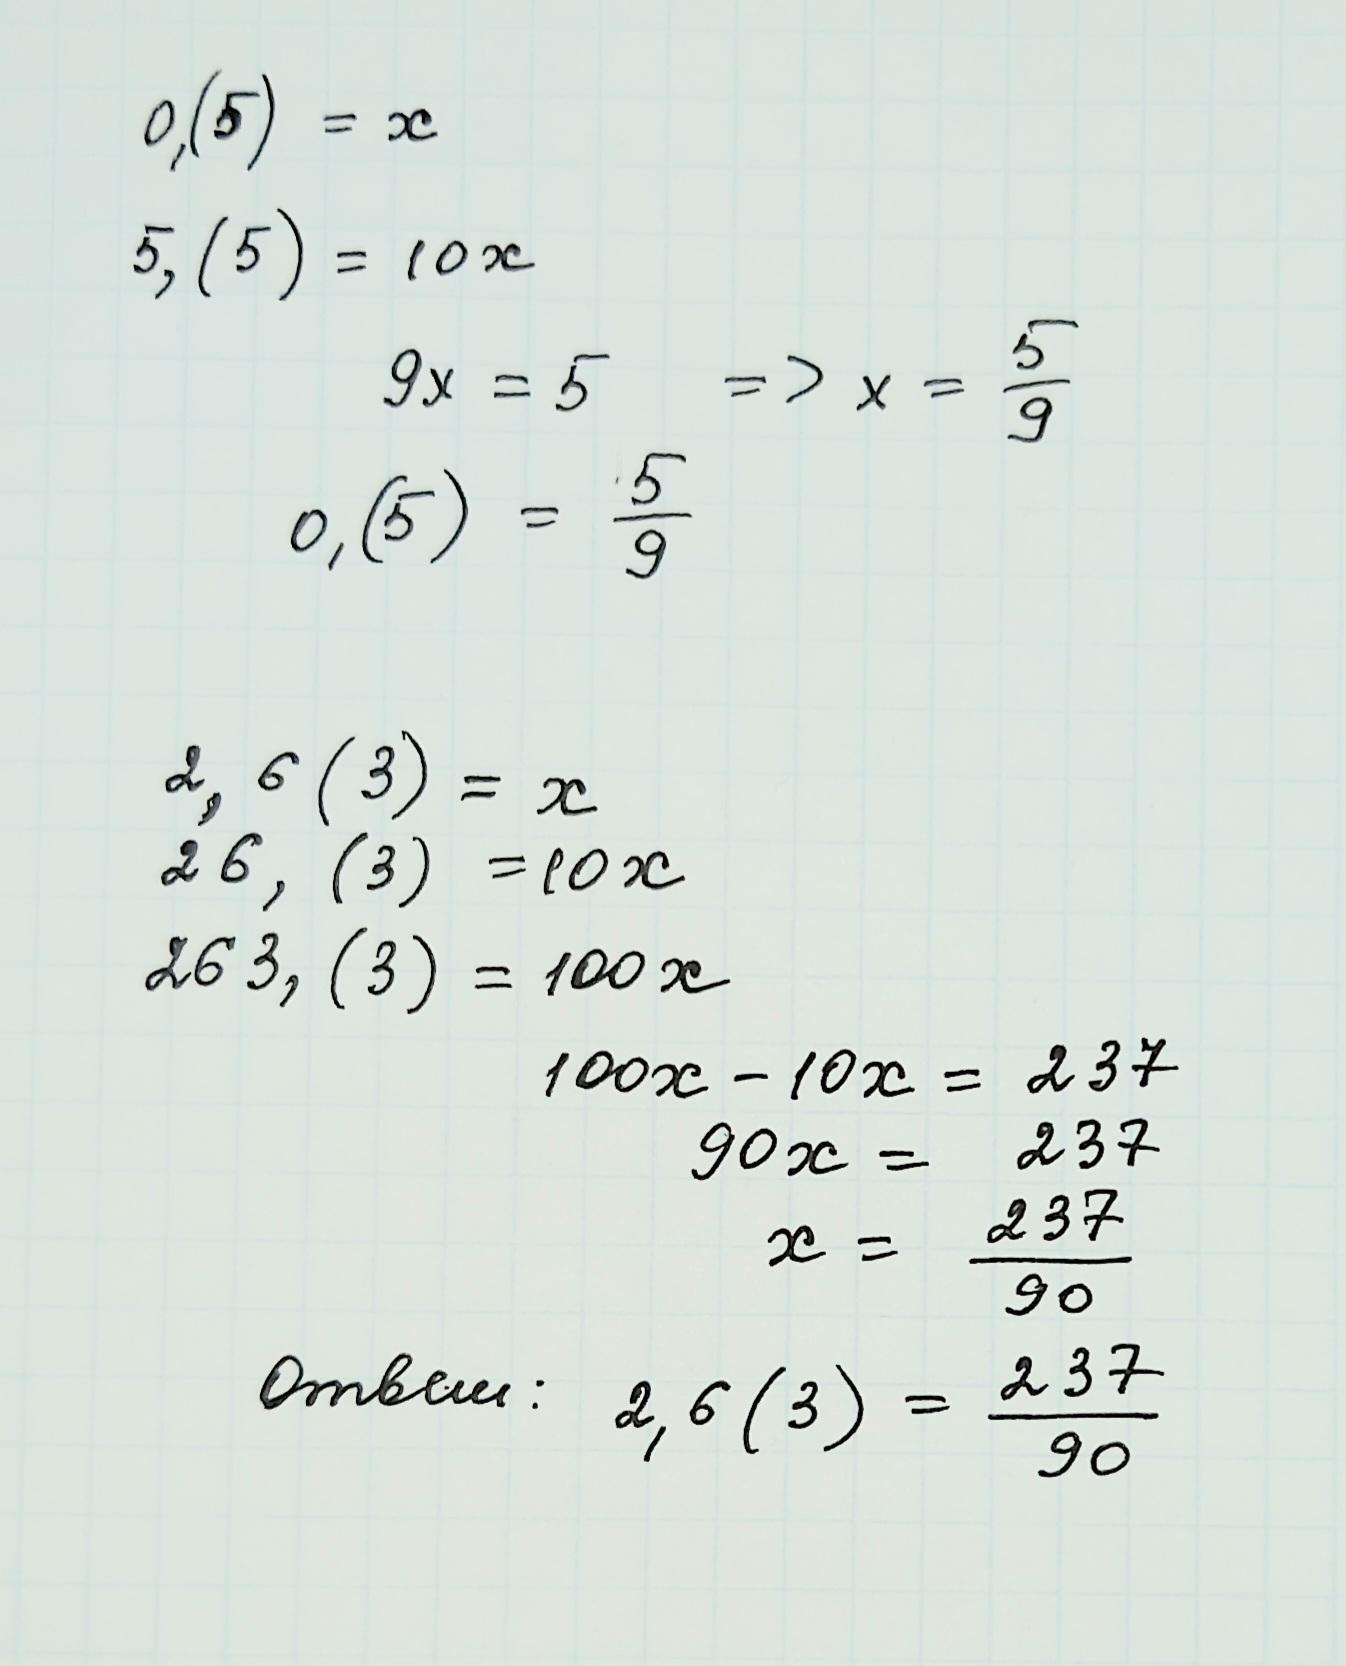 0,(5) = x
5,(5) = 10x
9x = 5 => x = 5/9
0,(5) = 5/9
2,6(3) = x
26,(3) = 10x
263,(3) = 100x
100x - 10x = 237
90x = 237
x = 237/90
Ответ: 2,6(3) = 237/90